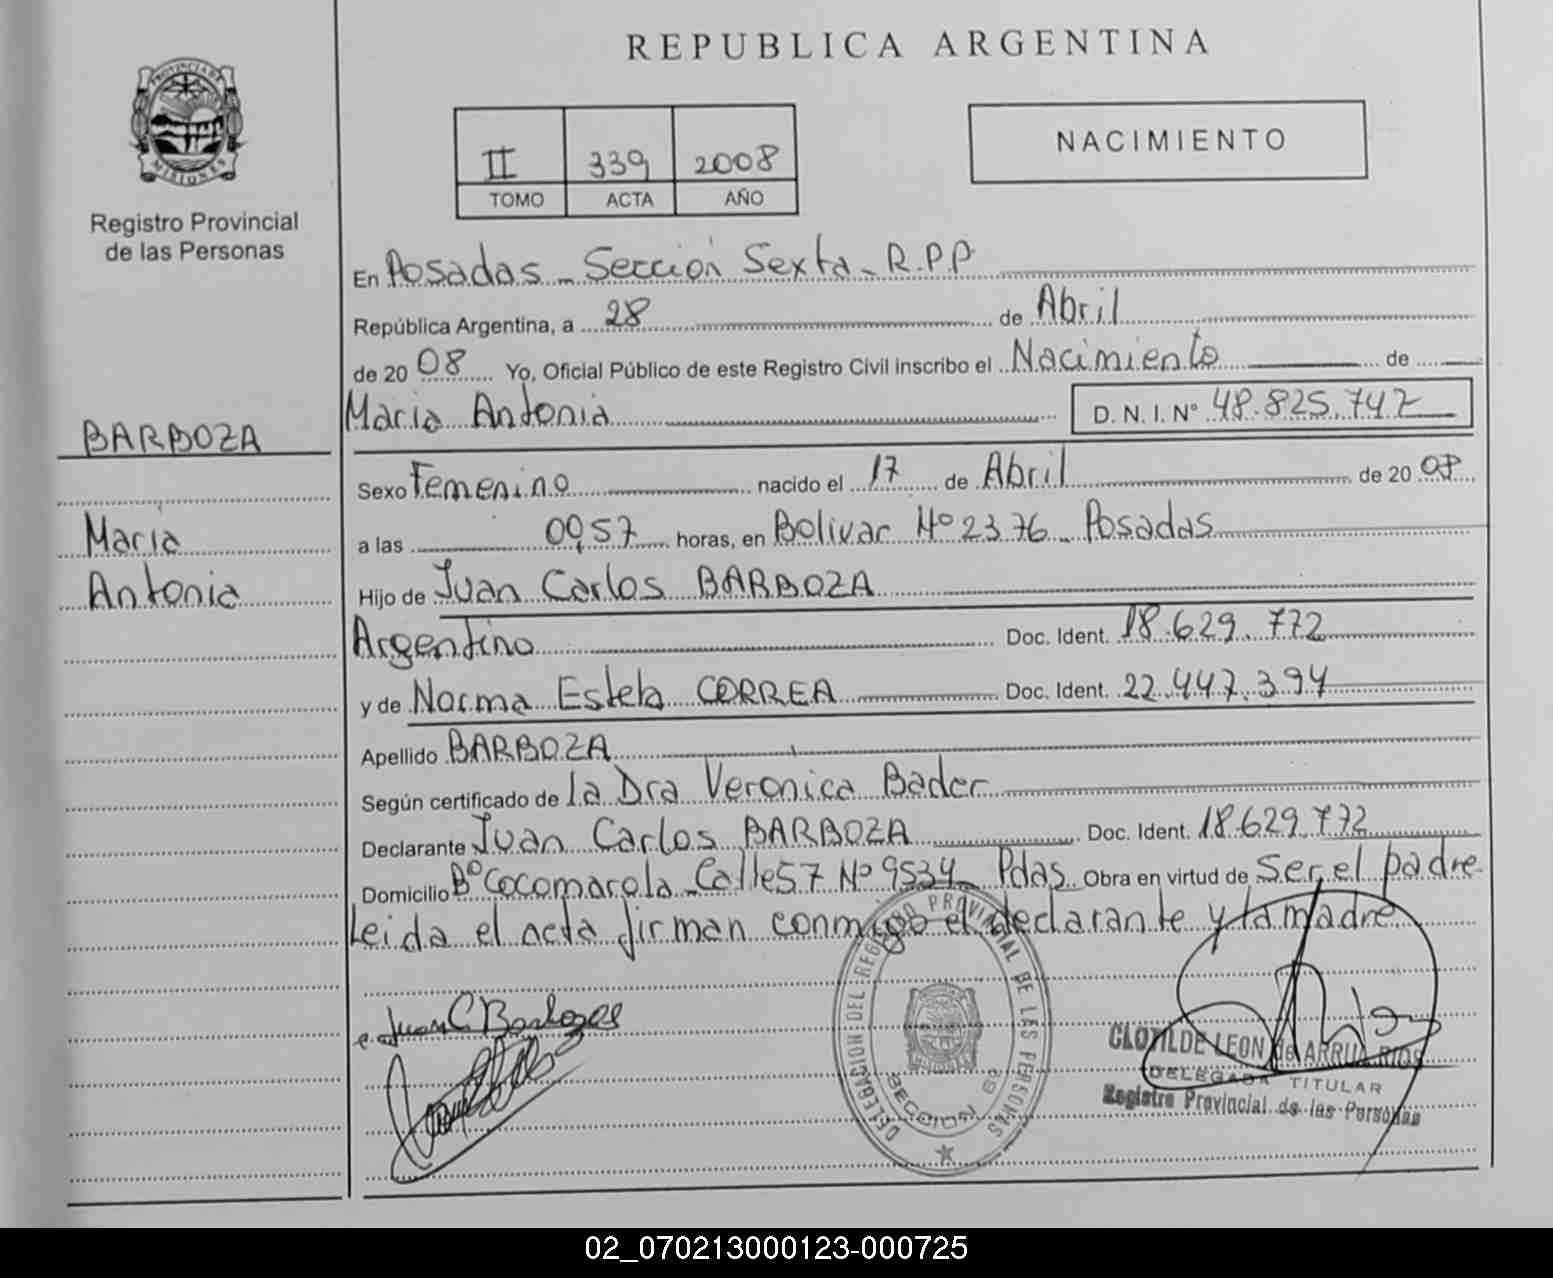 REPUBLICA ARGENTINA
PROVINCIA DE
MISIONES
Registro Provincial
de las Personas
II 339 2008
TOMO ACTA AÑO
NACIMIENTO
En Posadas - Sección Sexta - R.P.P
República Argentina, a 28 de Abril
de 20 08 Yo, Oficial Público de este Registro Civil inscribo el Nacimiento de
Maria Antonia D. N. I. N° 48.825.747
BARBOZA
Sexo Femenino nacido el 17 de Abril de 20 08
Maria
a las 00,57 horas, en Bolivar N° 2376 - Posadas
Antonia
Hijo de Juan Carlos BARBOZA
Argentino Doc. Ident. 18.629.772
y de Norma Estela CORREA Doc. Ident. 22.447.394
Apellido BARBOZA
Según certificado de la Dra Veronica Bader
Declarante Juan Carlos BARBOZA Doc. Ident. 18.629.772
Domicilio B° Cocomarola - Calle 57 N° 9534 - Pdas Obra en virtud de Ser el padre
Leida el acta firman conmigo el declarante y la madre
Juan C Barboza
DELEGACION DEL REGISTRO PROVINCIAL DE LAS PERSONAS
SECCION 6a
CLOTILDE LEON de ARRUA RIOS
DELEGADA TITULAR
Registro Provincial de las Personas
02_070213000123-000725